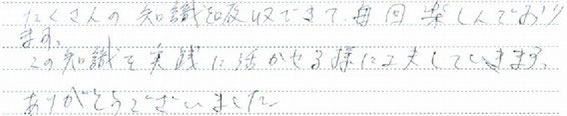 たくさんの知識を吸収できて、毎回楽しんでおり
ます。
この知識を実践に活かせる様に工夫していきます。
ありがとうございました